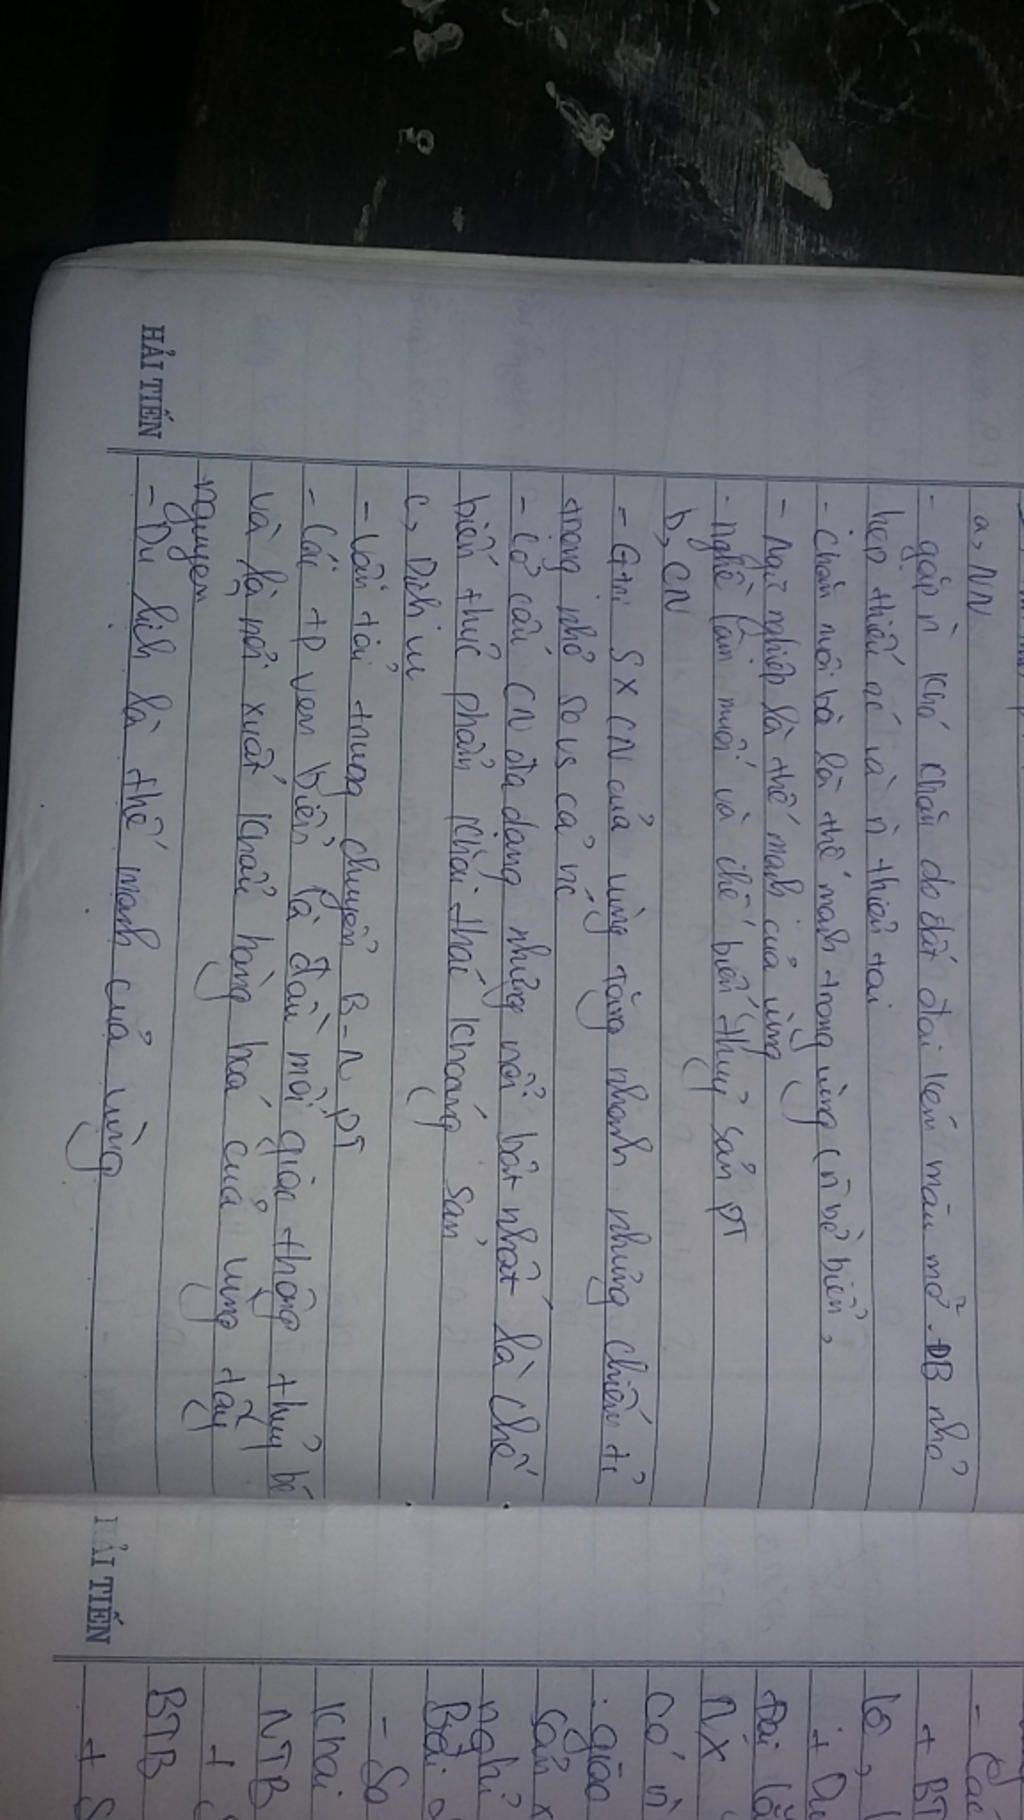 a, NN
- gặp n̄ khó khăn do đất đai kém màu mỡ. ĐB nhỏ
hẹp thiếu nc và n̄ thiên tai
- chăn nuôi bò là thế mạnh trong vùng (n̄ bờ biển,
- Ngư nghiệp là thế mạnh của vùng
- nghề làm muối và chế biến thuỷ sản PT
b, CN
- Gtrị SX CN của vùng tăng nhanh nhưng chiếm tỉ
trọng nhỏ so vs cả nc
- Cơ cấu CN đa dạng nhưng nổi bật nhất là chế
biến thực phẩm khai thác khoáng sản
c, Dịch vụ
- Vận tải trung chuyển B-N PT
- Các tp ven biển là đầu mối giao thông thuỷ bộ
và là nơi xuất khẩu hàng hoá của vùng tây
nguyên
- Du lịch là thế mạnh của vùng
HẢI TIẾN
+ BT
+ Du
NX
có n̄
. giao
sản x
nghi
- So
khai
NTB
+
BTB
+ S
HẢI TIẾN